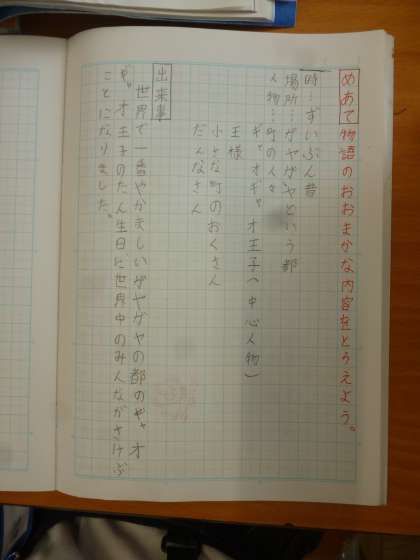 めあて物語のおおまかな内容をとらえよう。
時…ずいぶん昔
場所…ガヤガヤという都
人物…町の人々
ギャオギャオ王子(中心人物)
王様
小さな町のおくさん
だんなさん
出来事
世界で一番やかましいガヤガヤの都のギャオ
ギャオ王子のたん生日に世界中のみんながさけぶ
ことになりました。